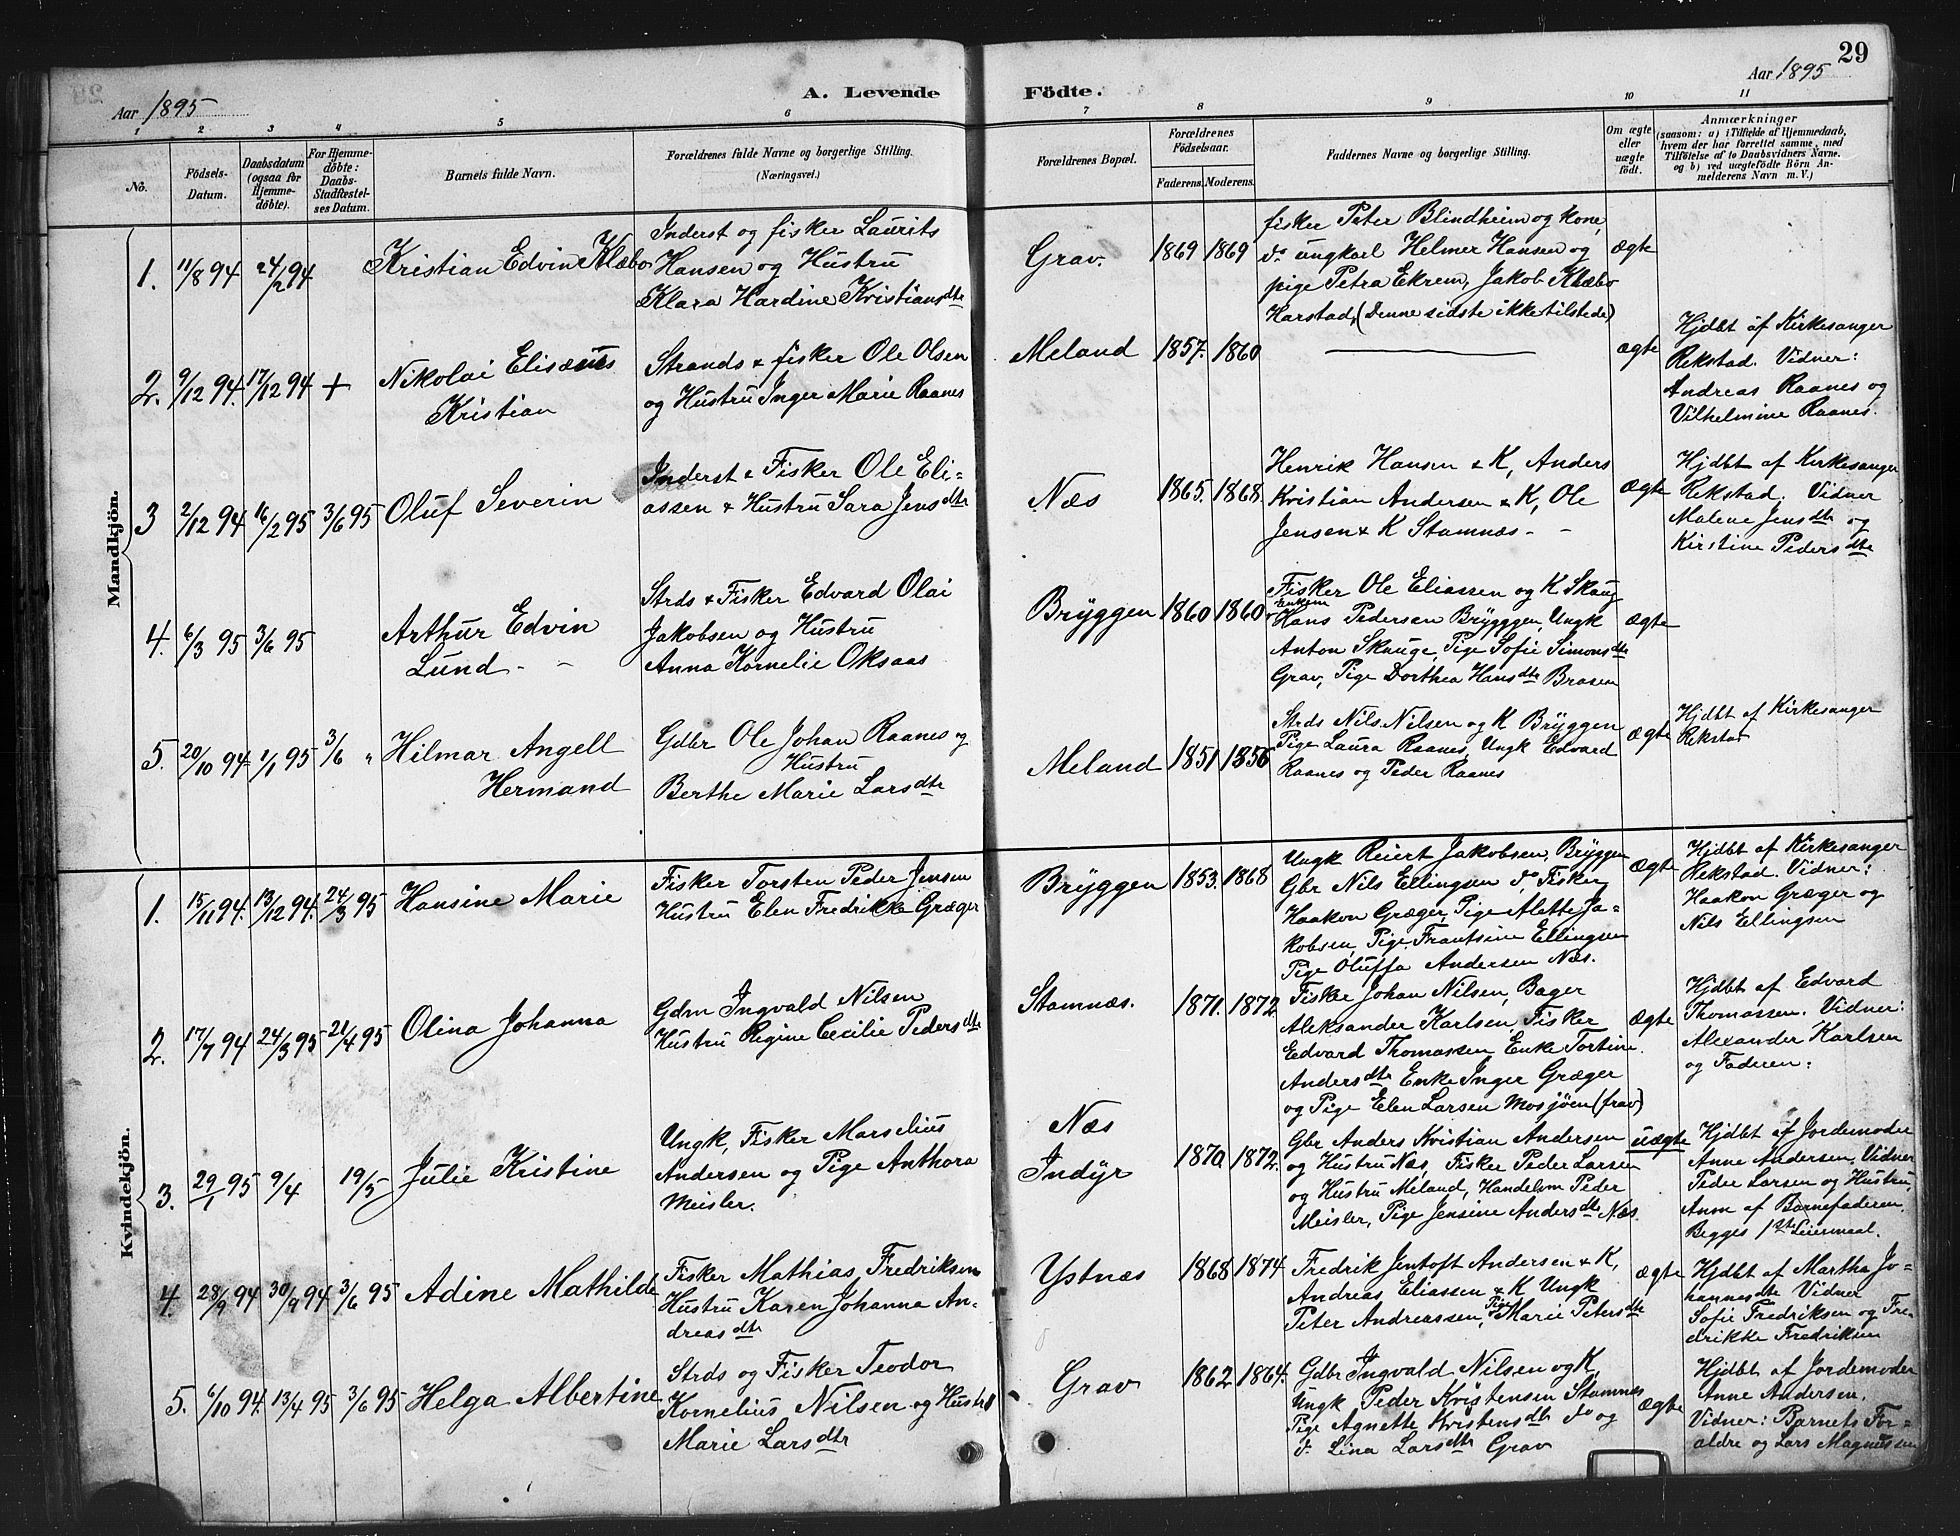 29
Aar 1895
A. Levende Födte.
Aar 1895
1 2 3 4 5 6 7 8 9 10 11
No.
Födsels-Datum.
Daabsdatum (ogsaa for Hjemme-døbte).
For Hjemme-döbte: Daabs-Stadfæstel-ses Datum.
Barnets fulde Navn.
Forældrenes fulde Navne og borgerlige Stilling.
(Næringsvei.)
Forældrenes Bopæl.
Forældrenes Födselsaar.
Faderens. Moderens.
Faddernes Navne og borgerlige Stilling.
Om ægte eller uægte födt.
Anmærkninger
(saasom: a) i Tilfælde af Hjemmedaab,
hvem der har forrettet samme, med
Tilföielse af to Daabsvidners Navne.
og b) ved uægtefödte Börn An-
melderens Navn m. V.)
Mandkjön.
1. 11/8 94 24/2 94
Kristian Edvin Klæbo
Inderst og fisker Laurits
Hansen og Hustru
Klara Hardine Kristiansdtr
Grav. 1869 1869
fisker Peter Blindheim og kone,
do ungkarl Helmer Hansen og
pige Petra Ekrem, Jakob Klæbo
Harstad, (Denne sidste ikke tilstede)
ægte
2. 9/12 94. 17/12 94 +
Nikolai Elisæus
Kristian
Strands & fisker Ole Olsen
og Hustru Inger Marie Raanes
Meland 1857. 1860
ægte
Hjdbt af Kirkesanger
Rekstad. Vidner:
Andreas Raanes og
Vilhelmine Raanes.
3 2/12 94 16/2 95 3/6 95
Oluf Severin
Inderst & Fisker Ole Eli-
assen & Hustru Sara Jensdtr
Næs 1865. 1868.
Henrik Hansen & K, Anders
Kristian Andersen & K, Ole
Jensen & K Stamnæs - -
ægte
Hjdbt af Kirkesanger
Rekstad. Vidner
Malene Jensdtr og
Kirstine Pedersdtr
4. 6/3 95 3/6 95
Arthur Edvin
Lund - -
Strds & Fisker Edvard Olai
Jakobsen og Hustru
Anna Kornelie Oksaas
Bryggen 1860 1860
Fisker Ole Eliassen og K Skaug
Enkem
Hans Pedersen Brygggen, Ungk
Anton Skauge, Pige Sofie Simonsdtr
Grav, Pige Dorthea Hansdtr Brasen
ægte
5. 20/10 94 1/1 95 3/6 "
Hilmar Angell
Hermand
Gdbr Ole Johan Raanes og
Hustru
Berthe Marie Larsdtr
Meland 1851 1856
Strds Nils Nilsen og K Bryggen
Pige Laura Raanes, Ungk Edvard
Raanes og Peder Raanes
ægte
Hjdbt af Kirkesanger
Rekstad
Kvindekjön.
1. 15/11 94. 13/12 94. 24/3 95
Hansine Marie
Fisker Torsten Peder Jensen
Hustru Elen Fredrikke Græger
Bryggen 1853. 1868
Ungk Reiert Jakobsen, Bryggen
Gbr Nils Ellingsen do, Fisker
Haakon Græger, Pige Alette Ja-
kobsen, Pige Frantsine Ellingsen
Pige Oluffa Andersen Næs.
ægte
Hjdbt af Kirkesanger
Rekstad. Vidner:
Haakon Græger og
Nils Ellingsen
2. 17/7 94 24/3 95 21/4 95
Olina Johanna
Gdm Ingvald Nilsen
Hustru Regine Cecilie Pedersdtr
Stamnæs. 1871. 1872
Fisker Johan Nilsen, Bager
Aleksander Karlsen, Fisker
Edvard Thomassen Enke Tortine
Andersdtr Enke Inger Græger
og Pige Elen Larsen Mosjöen (frav)
ægte
Hjdbt af Edvard
Thomassen. Vidner:
Alexander Karlsen
og Faderen:
3. 29/1 95 9/4 19/5
Julie Kristine
Ungk, Fisker Marselius
Andersen og Pige Anthora
Meisler.
Næs
Indyr
1870 1872.
Gbr Anders Kristian Andersen
og Hustru Næs, Fisker Peder Larsen
og Hustru Meland, Handelsm Peder
Meisler, Pige Jensine Andersdtr Næs.
uægte
Hjdbt af Jordemoder
Anne Andersen. Vidner
Peder Larsen og Hustru,
Anm af Barnefaderen.
Begges 1ste Leiermaal.
4. 28/9 94 30/9 94 3/6 95
Adine Mathilde
Fisker Mathias Fredriksen
Hustru Karen Johanna An-
dreasdtr
Ystnæs 1868 1874
Fredrik Jentoft Andersen & K,
Andreas Eliassen & K Ungk
Peter Andreassen, Pige Marie Petersdtr
ægte
Hjdbt af Martha Jo-
hannesdtr Vidner
Sofie Fredriksen og Fre-
drikke Fredriksen
5. 6/10 94. 13/4 95 3/6 95
Helga Albertine
Strds og Fisker Teodor
Kornelius Nilsen og Hustru
Marie Larsdtr
Grav 1862 1864.
Gdbr Ingvald Nilsen og K,
Ungk Peder Kristensen Stamnæs
Pige Agnette Kristensdtr do og
do Lina Larsdtr Grav
ægte
Hjdbt af Jordemoder
Anne Andersen.
Vidner: Barnets For-
ældre og Lars Magnussen